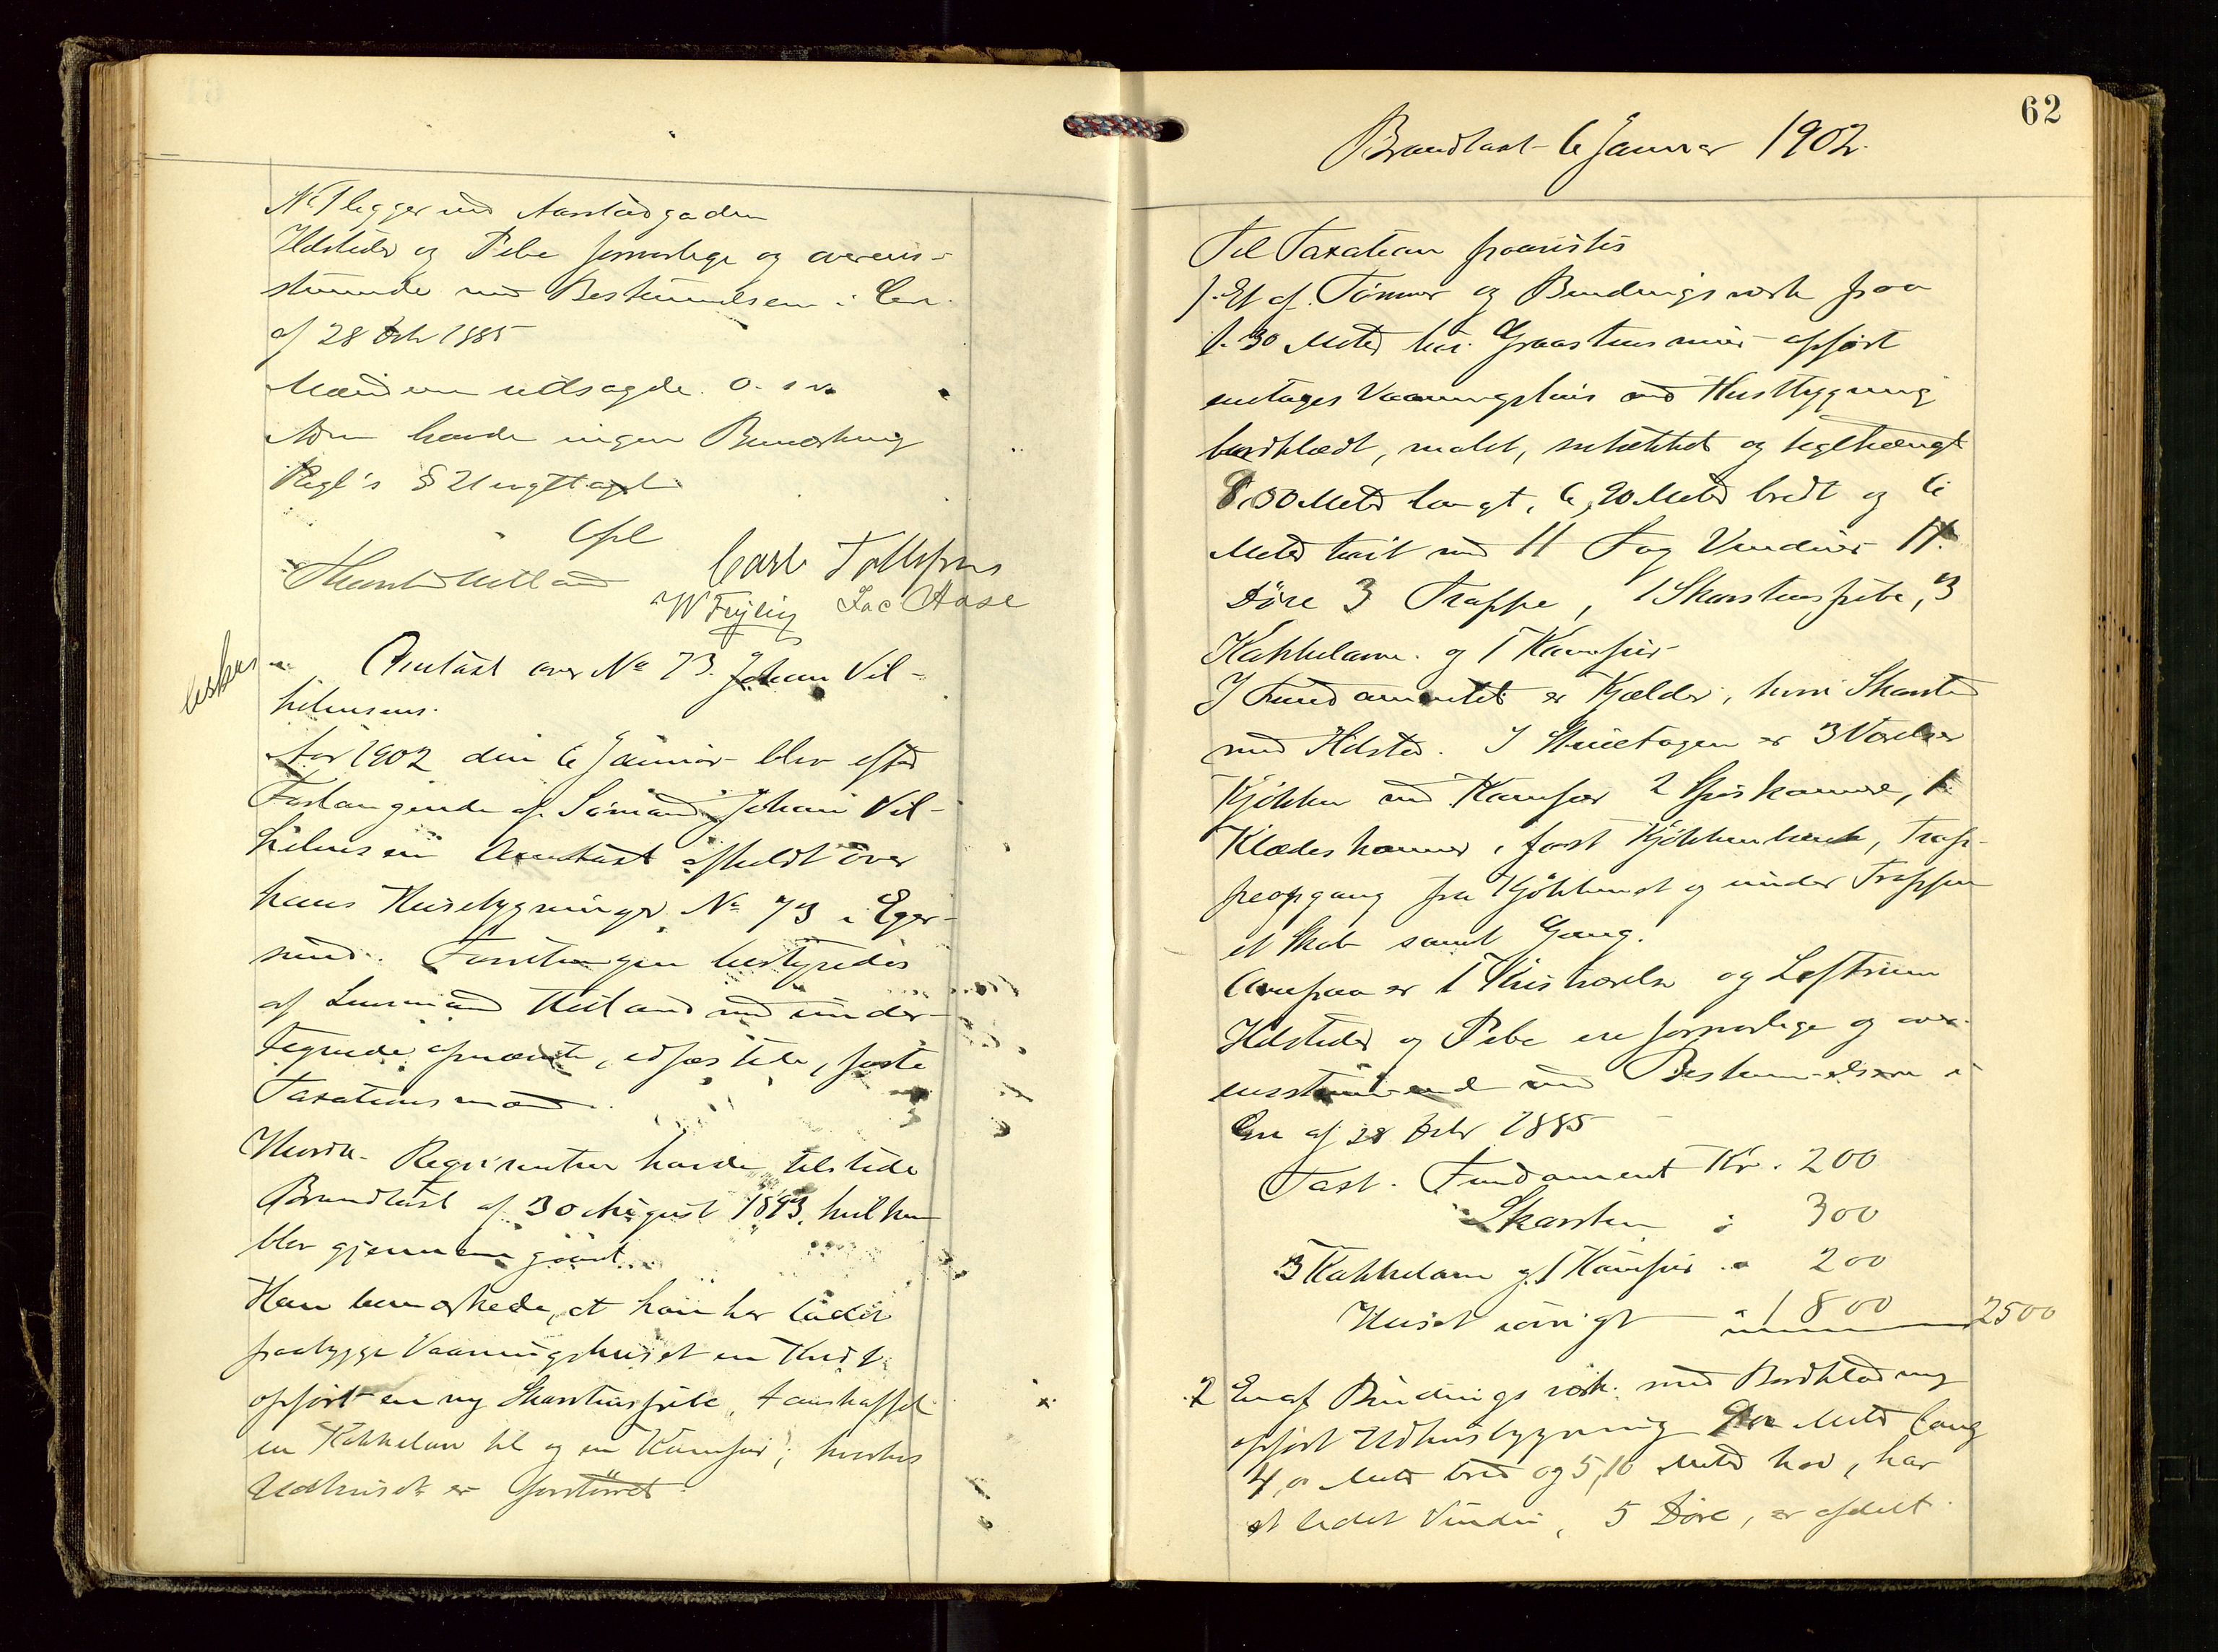 No 1 ligger ved Aarstadgaden
Ildsteder og Pibe forsvarlige og overens-
stemmende med Bestemmelserne i Cir.
af 28 Oct 1885
Mændene udsagde. o. s. v.
havde ingen Bemærkning
Regl's § 21 iagttaget
Opl
Carl Tollefsen
W Feyling Jac Aase
Omtaxt over No 73. Johan Vil-
helmsens.
Aar 1902 den 6 Januar blev efter
Forlangende af Sømand Johan Vil-
helmsen Omtaxt afholdt over
hans Husebygninger No 73 i Eger-
sund. Forretningen bestyredes
af Lensmand Hetland med under-
tegnede opnævnte, edfæstede, faste
Taxationsmænd.
Hovd. Regvirenten havde tilstede
Brandtaxt af 30 August 1893, hvilken
blev gjennemgaaet.
Han bemærkede, at han har ladet
paabygge Vaaningshuset en Kvist
opført en ny Skorstenspibe, anskaffet
en Kakkelovn til og en Komfur; hvorhos
Udhuset er forstørret.
62
Brandtaxt 6 Januar 1902.
Til Taxation paavistes
1. Et af Tømmer og Bindingsværk paa
1.30 Meter høi Graastensmur opført
entages Vaaningshus med Kvistbygning
bordklædt, malet, og teglhængt
8.50 Meter langt, 6,90 Meter bredt og 6
Meter høit med 11 Fag Vinduer 11
Døre 3 Trappe, 1 Skorstenspibe, 3
Kakkelovne og 1 Komfur
I Fundamentet er Kjælder, hvori Skorsten
med Ildsted. I Stueetagen er 3 Værelser
Kjøkken med Komfur 2 Spiskammere, 1
Klædeskammer, fast Kjøkkenbænk, Trap-
peopgang fra Kjøkkenet og under Trappen
et Skab samt Gang.
Ovenpaa er 1 Kvistværelse og Loftsrum
Ildsteder og Pibe ere forsvarlige og over-
ensstemmende med Bestemmelserne i
Cir af 28 Octr 1885
Taxt. Fundament Kr. 200
Skorsten " 300
3 Kakkelovn og 1 Komfur " 200
Huset iøvrigt " 1800 2500
2 En af Bindingsværk med Bordklædning
opført Udhusbygning Meter lang
4, Meter bred og 5,10 Meter høi, har
et lidet Vindu, 5 Døre, er afdelt